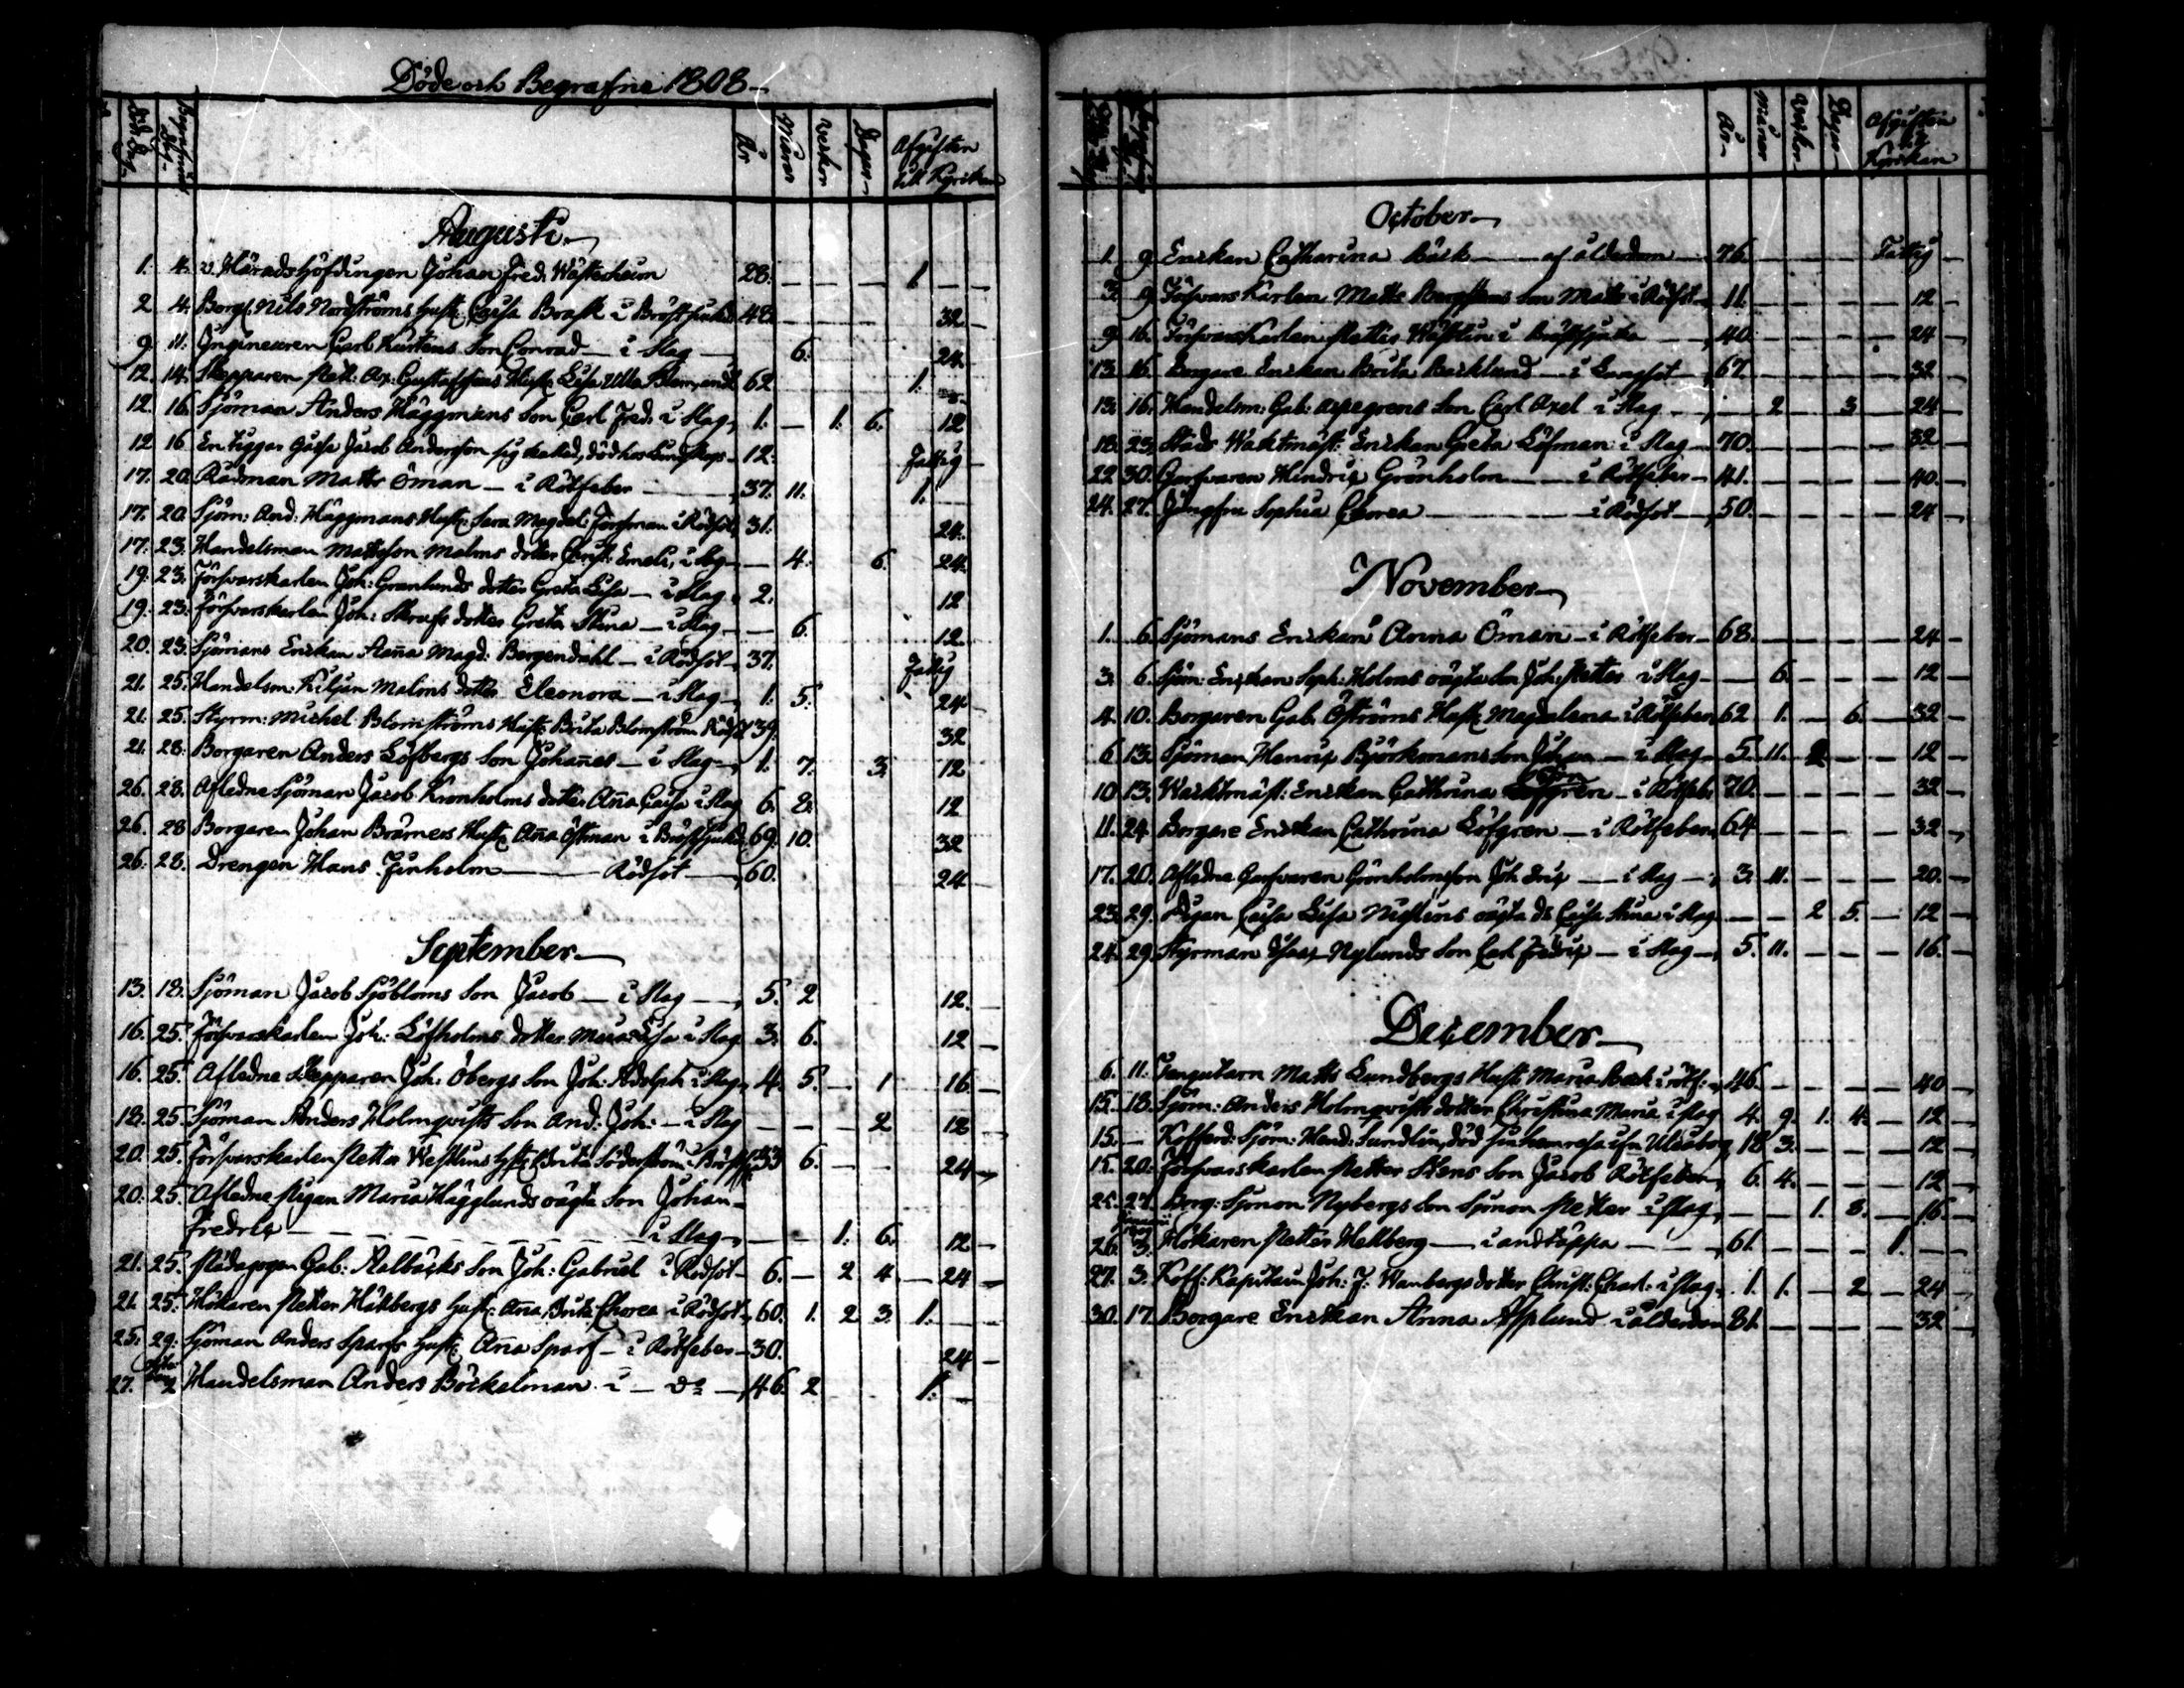 Döde och Begrafne 1808
År Månar Veckor Dagar Afgiften till Kyrckan
Augusti
1. 4. v. Häradshöfdingen Johan Fred. Wästerheim 28. 1.
2. 4. Borg. Nils Nordströms Hustr. Caisa Brask i Bröstsjuka 48. 32
9. 11. Ingineuren Carl Kurtens Son Conrad i Slag 6. 24.
12. 14. Skepparen Gustafssons Hustr. Lisa Ulla 62 1.
12. 16. Sjöman Anders Häggmans Son Carl Fred. i Slag 1. 1. 6. 12
12 16 En tiggar Gåsse Jacob Andersson död hos 12. Fattig
17. 20. Rådman Matts Öman i Rötfeber 37. 11. 1.
17. 20. Sjöm: And: Häggmans Hustr. Sara Magdel: Forssman i Rödsot 31. 24.
17. 23. Handelsman Mattsson Malms dotter Christ. Emeli, i slag 4. 6. 24.
19. 23. Försvarskarlen Joh: Granlunds dotter Greta Lisa i Slag 2. 12
19. 23. Försvarskarlen Joh: dotter Greta Stina i Slag 6. 12.
20. 23. Sjömans Enckan Hanna Magd: Bergendahl i Rödsot 37. Fattig
21. 25. Handelsm: Kiljan Malms dotter Eleonora i Slag 1. 5. 24
21. 25. Styrm: Michel Blomströms Hustr. Brita Blomström Rödsot 39. 32
21. 28. Borgaren Anders Löfbergs Son Johannes i Slag 1. 7. 3. 12
26. 28. Afledne Sjöman Jacob Kronholms dotter Anna Caisa i Slag 6. 8. 12
26. 28 Borgaren Johan Brämers Hustr. Anna Östman i Bröstsjuka 69. 10. 32
26. 28. Drengen Hans Finholm Rödsot 60. 24
September
13. 18. Sjöman Jacob Sjöbloms Son Jacob i Slag 5. 2 12.
16. 25. Försvarskarlen Joh: Löfholms dotter Maria Lisa i Slag 3. 6. 12
16. 25. Afledne Skepparen Joh: Öbergs Son Joh: Adolph i Slag 4. 5. 1 16.
18. 25. Sjöman Anders Holmqvists Son And: Joh: i Slag 2 12
20. 25. Försvarskarlen Petter Westlins Hustr. Brita Söderström Bröstsj. 33 6. 24
20. 25. Afledne Pigan Maria Hägglunds oägta Son Johan
Fredric i Slag 1. 6. 12
21. 25. Pädagogen Gab: Aalbäcks Son Joh: Gabriel i Rödsot 6. 2 4. 24
21. 25. Hökaren Petter Hällbergs Hustr. Anna Brita Chorea i Rödsot 60. 1. 2 3. 1.
25. 29. Sjöman Anders Sparfs Hustr. Anna Sparf i Rötfeber 30. 24
27. 2 Handelsman Anders Böckelman i do 46. 2 1.
År Månar Veckor Dagar Afgiften till Kyrckan
October
1. 9. Enckan Catharina Bäck af ålderdom 76. Fattig
3. 9. Försvars Karlen Matts Bergstens Son Matts i Rödsot 11. 12
9. 16. Försvarskarlen Petter Wästlin i Bröstsjuka 40. 24
13. 16. Borgare Enckan Brita Backlund i Lungsot 67. 32
13. 16. Handelsm: Gab: Aspegrens Son Carl Axel i Slag 2 3 24
18. 23. Stads Wacktmäst: Enckan Greta Löfman i Slag 70. 32
22. 30. Garfvaren Hindric Grönholm i Rötfeber 41. 40.
24. 27. Jungfru Sophia Chorea i Rödsot 50. 24
November
1. 6. Sjömans Enckan Anna Öman i Rötfeber 68. 24
3. 6. Sjöm: Enckan Soph: Holms oägta Son Joh: Petter i Slag 6. 12
4. 10. Borgaren Gab. Öströms Hustr. Magdalena i Rötfeber 62 1. 6. 32
6. 13. Sjöman Henric Björkmans Son Johan i Slag 5. 11. 2 12
10 13. Wacktmäst: Enckan Cathrina i Rötfeb. 70. 32
11. 24. Borgare Enckan Cathrina Löfgren i Rötfeber 64 32
17. 20. Afledne Garfvaren Grönholms son Joh Eric i Slag 3. 11. 20.
23. 29. Pigan Caisa Lisa Niglins oägta dr. Caisa Stina i Slag 2 5. 12
24. 29. Styrman Isaac Nylunds Son Carl Fredric i Slag 5. 11. 16.
December
6. 11. Matts Lundbergs Hustr. Maria Back i rötf: 46. 40
15. 18. Sjöm: Anders Holmqvists dotter Christina Maria i slag 4. 9. 1. 4. 12
15. Kofferd: Sjöm: Hend: Sundlin, död hemresa ifrn Uleåborg 18 3. 12
15. 20. Försvarskarlen Petter Stens Son Jacob Rötfeber 6. 4. 12
25. 27. Borg: Simon Nybergs Son Simon Petter i Slag 1. 3. 16.
Januarii
26. 3. Hökaren Petter Hellberg i andtäppa 61. 1.
27. 3. Koff: Kapitain Joh: J: Wanbergs dotter Christ: Charl: i Slag 1. 1. 2 24
30. 17. Borgare Enckan Anna Asplund i ålderdom 81. 32